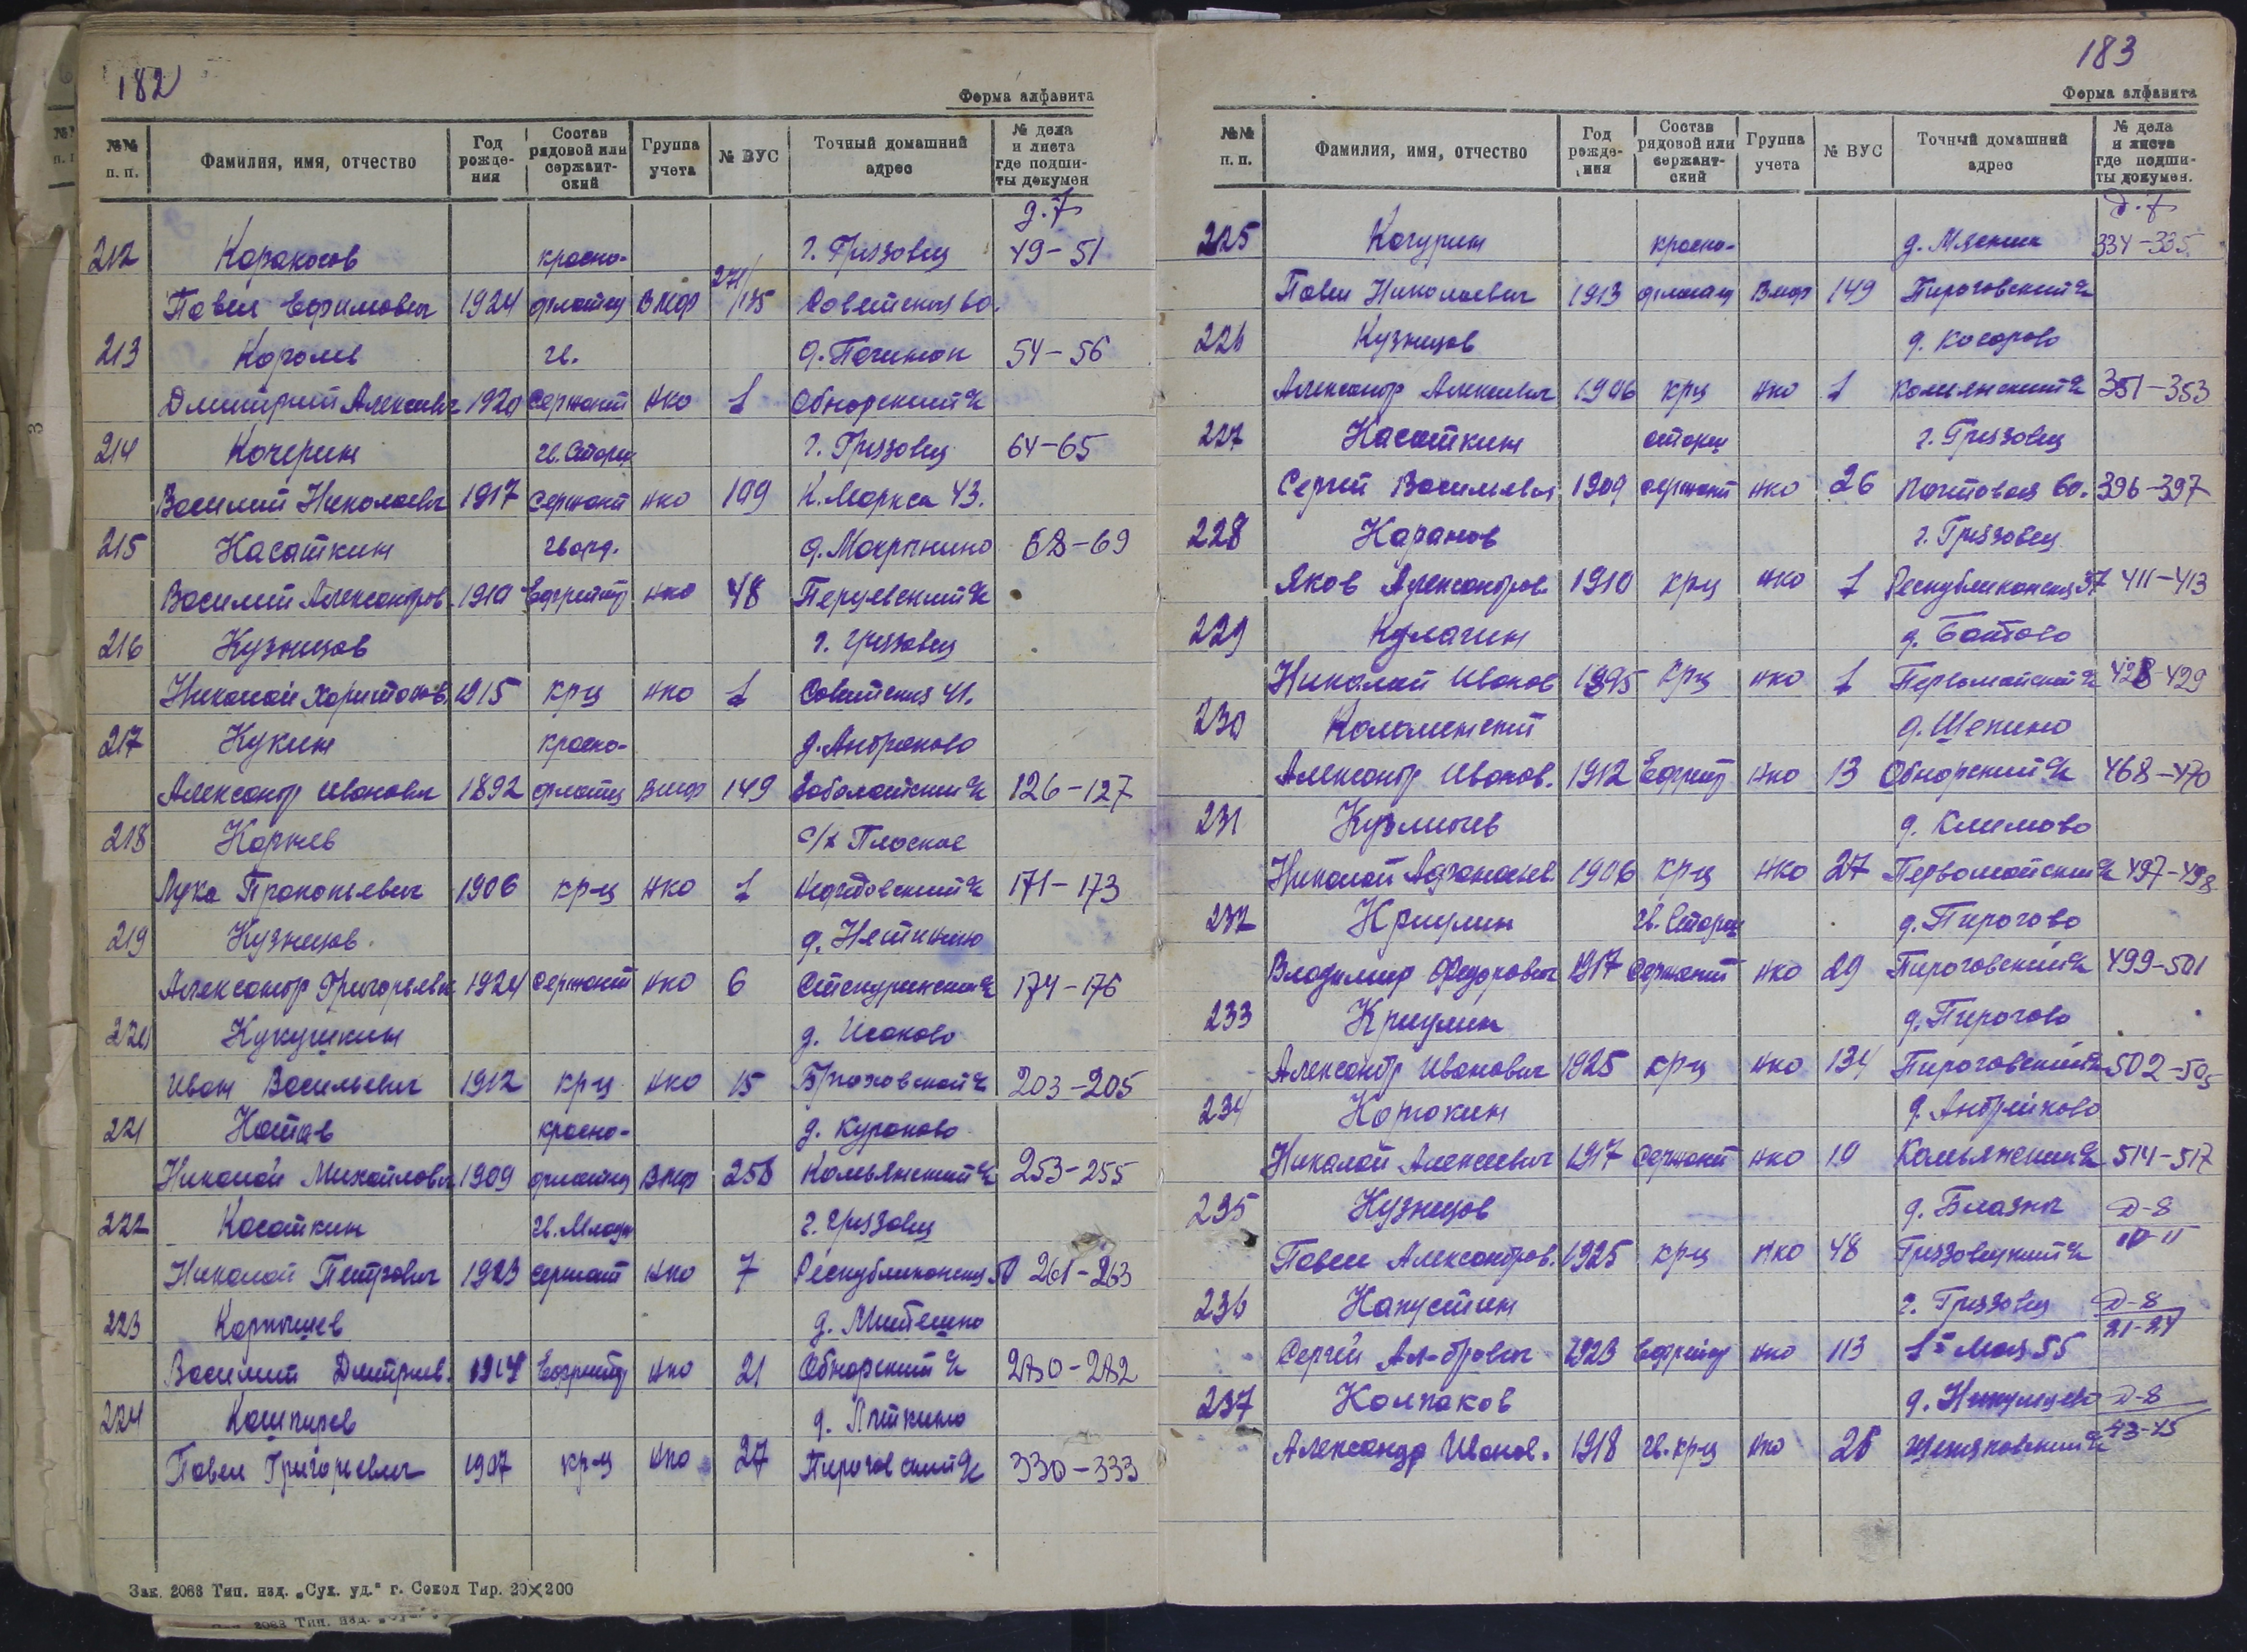 182
Форма алфавита
№№ п. п. Фамилия, имя, отчество Год рождения Состав рядовой или сержантский Группа учета № ВУС Точный домашний адрес № дела и листа где подшиты докумен
д. 7
212 Каракосов красно- г. Грязовец 49-51
Павел Ефимович 1924 флотец ВМФ 271/135 Советская 60.
213 Королев гв. д. Починок 54-56
Дмитрий Алексеевич 1920 сержант НКО 1 Обнорский
214 Кочерин гв. Старш г. Грязовец 64-65
Василий Николаевич 1917 сержант НКО 109 К. Маркса 43.
215 Касаткин гвард. д. Мокрынино 68-69
Василий Александров. 1910 Ефрейтор НКО 48 Перцевский
216 Кузнецов г. Грязовец
Николай Харитонов. 1915 кр-ц НКО 1 Советская 41.
217 Кукин красно- д. Андраково
Александр Иванович 1892 флотец ВМФ 149 Заболотский 126-127
218 Корнев с/х Плоское
Лука Прокопьевич 1906 кр-ц НКО 1 171-173
219 Кузнецов
Александр Григорьевич 1924 сержант НКО 6 174-176
220 Кукушкин д. Исаково
Иван Васильевич 1912 кр-ц НКО 15 203-205
221 Котов красно- д. Кураково
Николай Михайлович 1909 флотец ВМФ Комьянский 253-255
222 Касаткин гв. Младш г. Грязовец
Николай Петрович 1923 сержант НКО 7 Республиканская 50 261-263
223 Карпышев
Василий Дмитриев. Ефрейтор НКО 21 Обнорский 280-282
224 Кашпирев д. Пяткино
Павел Григорьевич 1907 кр-ц НКО 27 Пироговский 330-333
Зак. 2088 Тип. изд. „Сух. уд.“ г. Сокол Тир. 20×200
183
Форма алфавита
№№ п. п. Фамилия, имя, отчество Год рождения Состав рядовой или сержантский Группа учета № ВУС Точный домашний адрес № дела и листа где подшиты докумен.
д. 7
225 Качурин красно- д. Мясник 334-335
Павел Николаевич 1913 флотец ВМФ 149 Пироговский
226 Кузнецов д. Косарово
Александр Алексеевич 1906 кр-ц НКО 1 Комьянский 351-353
227 Касаткин старш г. Грязовец
Сергей Васильевич 1909 сержант НКО 26 Почтовая 60. 396-397
228 Каранов г. Грязовец
Яков Александров. 1910 кр-ц НКО 1 Республиканская 37 411-413
229 Кулагин д. Батово
Николай Иванов 1895 кр-ц НКО 1 Первомайский 428-429
230 Коломенский д. Щепино
Александр Иванов. 1912 Ефрейтор НКО 13 Обнорский 468-470
231 Кузмичев д. Климово
Николай Афанасьев. 1906 кр-ц НКО 27 Первомайский 497-498
232 Криулин гв. Старш д. Пирогово
Владимир Федорович 1917 сержант НКО 29 Пироговский 499-501
233 Криулин д. Пирогово
Александр Иванович 1925 кр-ц НКО 134 Пироговский 502-505
234 Корюкин д. Андрейково
Николай Алексеевич 1917 сержант НКО 19 Комьянский 514-517
235 Кузнецов д. Блазны Д-8
Павел Александров. 1925 кр-ц НКО 48 Грязовецкий 10-11
236 Капустин г. Грязовец Д-8
Сергей Ал-дрович 1923 Ефрейтор НКО 113 1е Мая 55 21-27
237 Колпаков Д-8
Александр Иванов. 1918 гв. кр-ц НКО 43-45